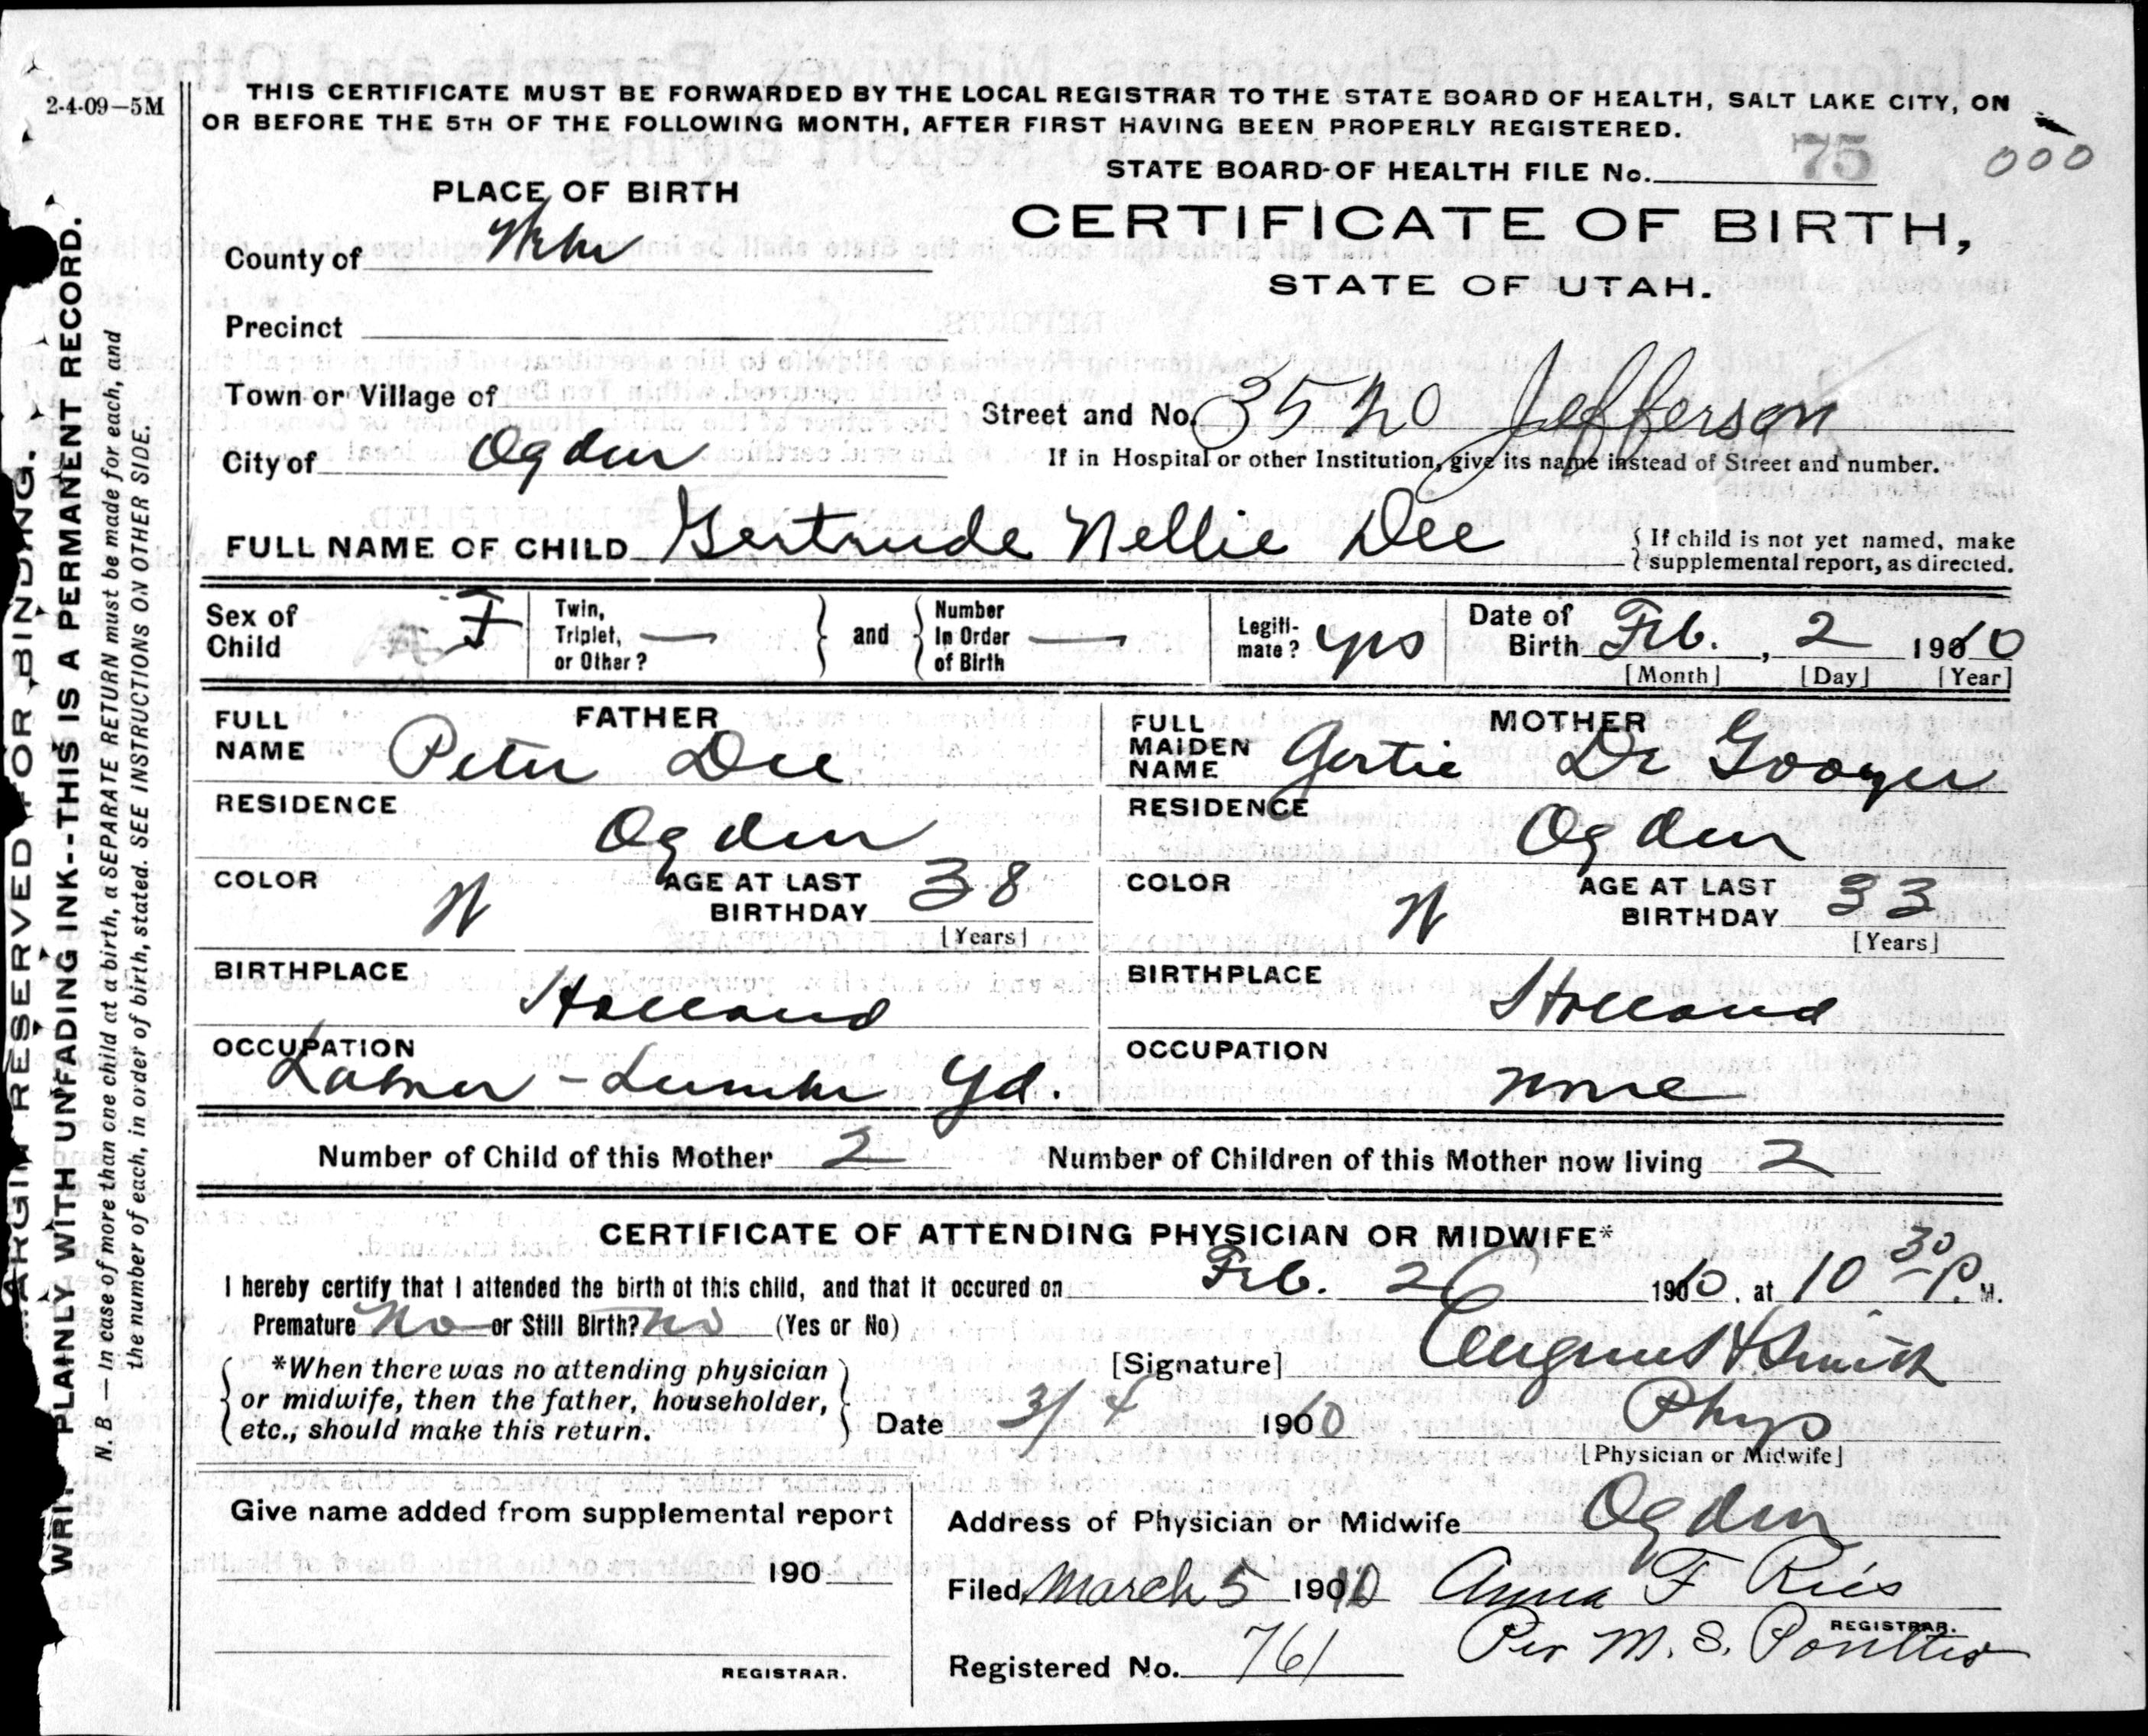 2-4-09—5M
THIS CERTIFICATE MUST BE FORWARDED BY THE LOCAL REGISTRAR TO THE STATE BOARD OF HEALTH, SALT LAKE CITY, ON
OR BEFORE THE 5TH OF THE FOLLOWING MONTH, AFTER FIRST HAVING BEEN PROPERLY REGISTERED.
STATE BOARD OF HEALTH FILE No. 75 000
PLACE OF BIRTH
CERTIFICATE OF BIRTH,
STATE OF UTAH.
County of Weber
Precinct
Town or Village of
Street and No. 3520 Jefferson
City of Ogden
If in Hospital or other Institution, give its name instead of Street and number.
FULL NAME OF CHILD Gertrude Nellie Dee
{ If child is not yet named, make
supplemental report, as directed.
Sex of Child F
Twin, Triplet, or Other? —
and
Number In Order of Birth —
Legiti-mate? yes
Date of Birth Feb. , 2 1910
[Month] [Day] [Year]
FATHER
FULL NAME Peter Dee
MOTHER
FULL MAIDEN NAME Gertie De Gooyer
RESIDENCE Ogden
RESIDENCE Ogden
COLOR W
AGE AT LAST BIRTHDAY 38
[Years]
COLOR W
AGE AT LAST BIRTHDAY 33
[Years]
BIRTHPLACE Holland
BIRTHPLACE Holland
OCCUPATION Labor - Lumber Yd.
OCCUPATION none
Number of Child of this Mother 2
Number of Children of this Mother now living 2
CERTIFICATE OF ATTENDING PHYSICIAN OR MIDWIFE*
I hereby certify that I attended the birth of this child, and that it occured on Feb. 2 1910, at 10 30 P. M.
Premature No or Still Birth? No (Yes or No)
*When there was no attending physician
or midwife, then the father, householder,
etc., should make this return.
[Signature] Smith
Date 3/4 1910
Phys
[Physician or Midwife]
Give name added from supplemental report
190
REGISTRAR.
Address of Physician or Midwife Ogden
Filed March 5 1910 Anna F Ries
REGISTRAR.
Per M. S. Poulter
Registered No. 761
MARGIN RESERVED FOR BINDING.
WRITE PLAINLY WITH UNFADING INK--THIS IS A PERMANENT RECORD.
N. B.—In case of more than one child at a birth, a SEPARATE RETURN must be made for each, and
the number of each, in order of birth, stated. SEE INSTRUCTIONS ON OTHER SIDE.